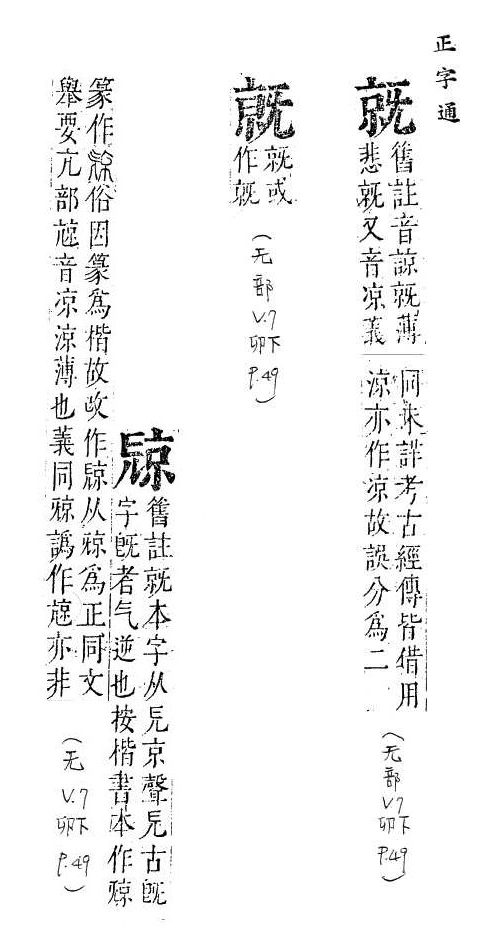 正字通
舊註音諒薄
悲又音凉義
同未詳考古經傳皆借用
涼亦作涼故誤分爲二
(无部V.7卯下P.49)
或
作
(无部V.7卯下P.49)
舊註本字从旡京聲旡古旣
字旣者气逆也按楷書本作
篆作俗因篆爲楷故改作从爲正同文
舉要亢部音凉涼薄也義同譌作亦非
(无V.7卯下P.49)